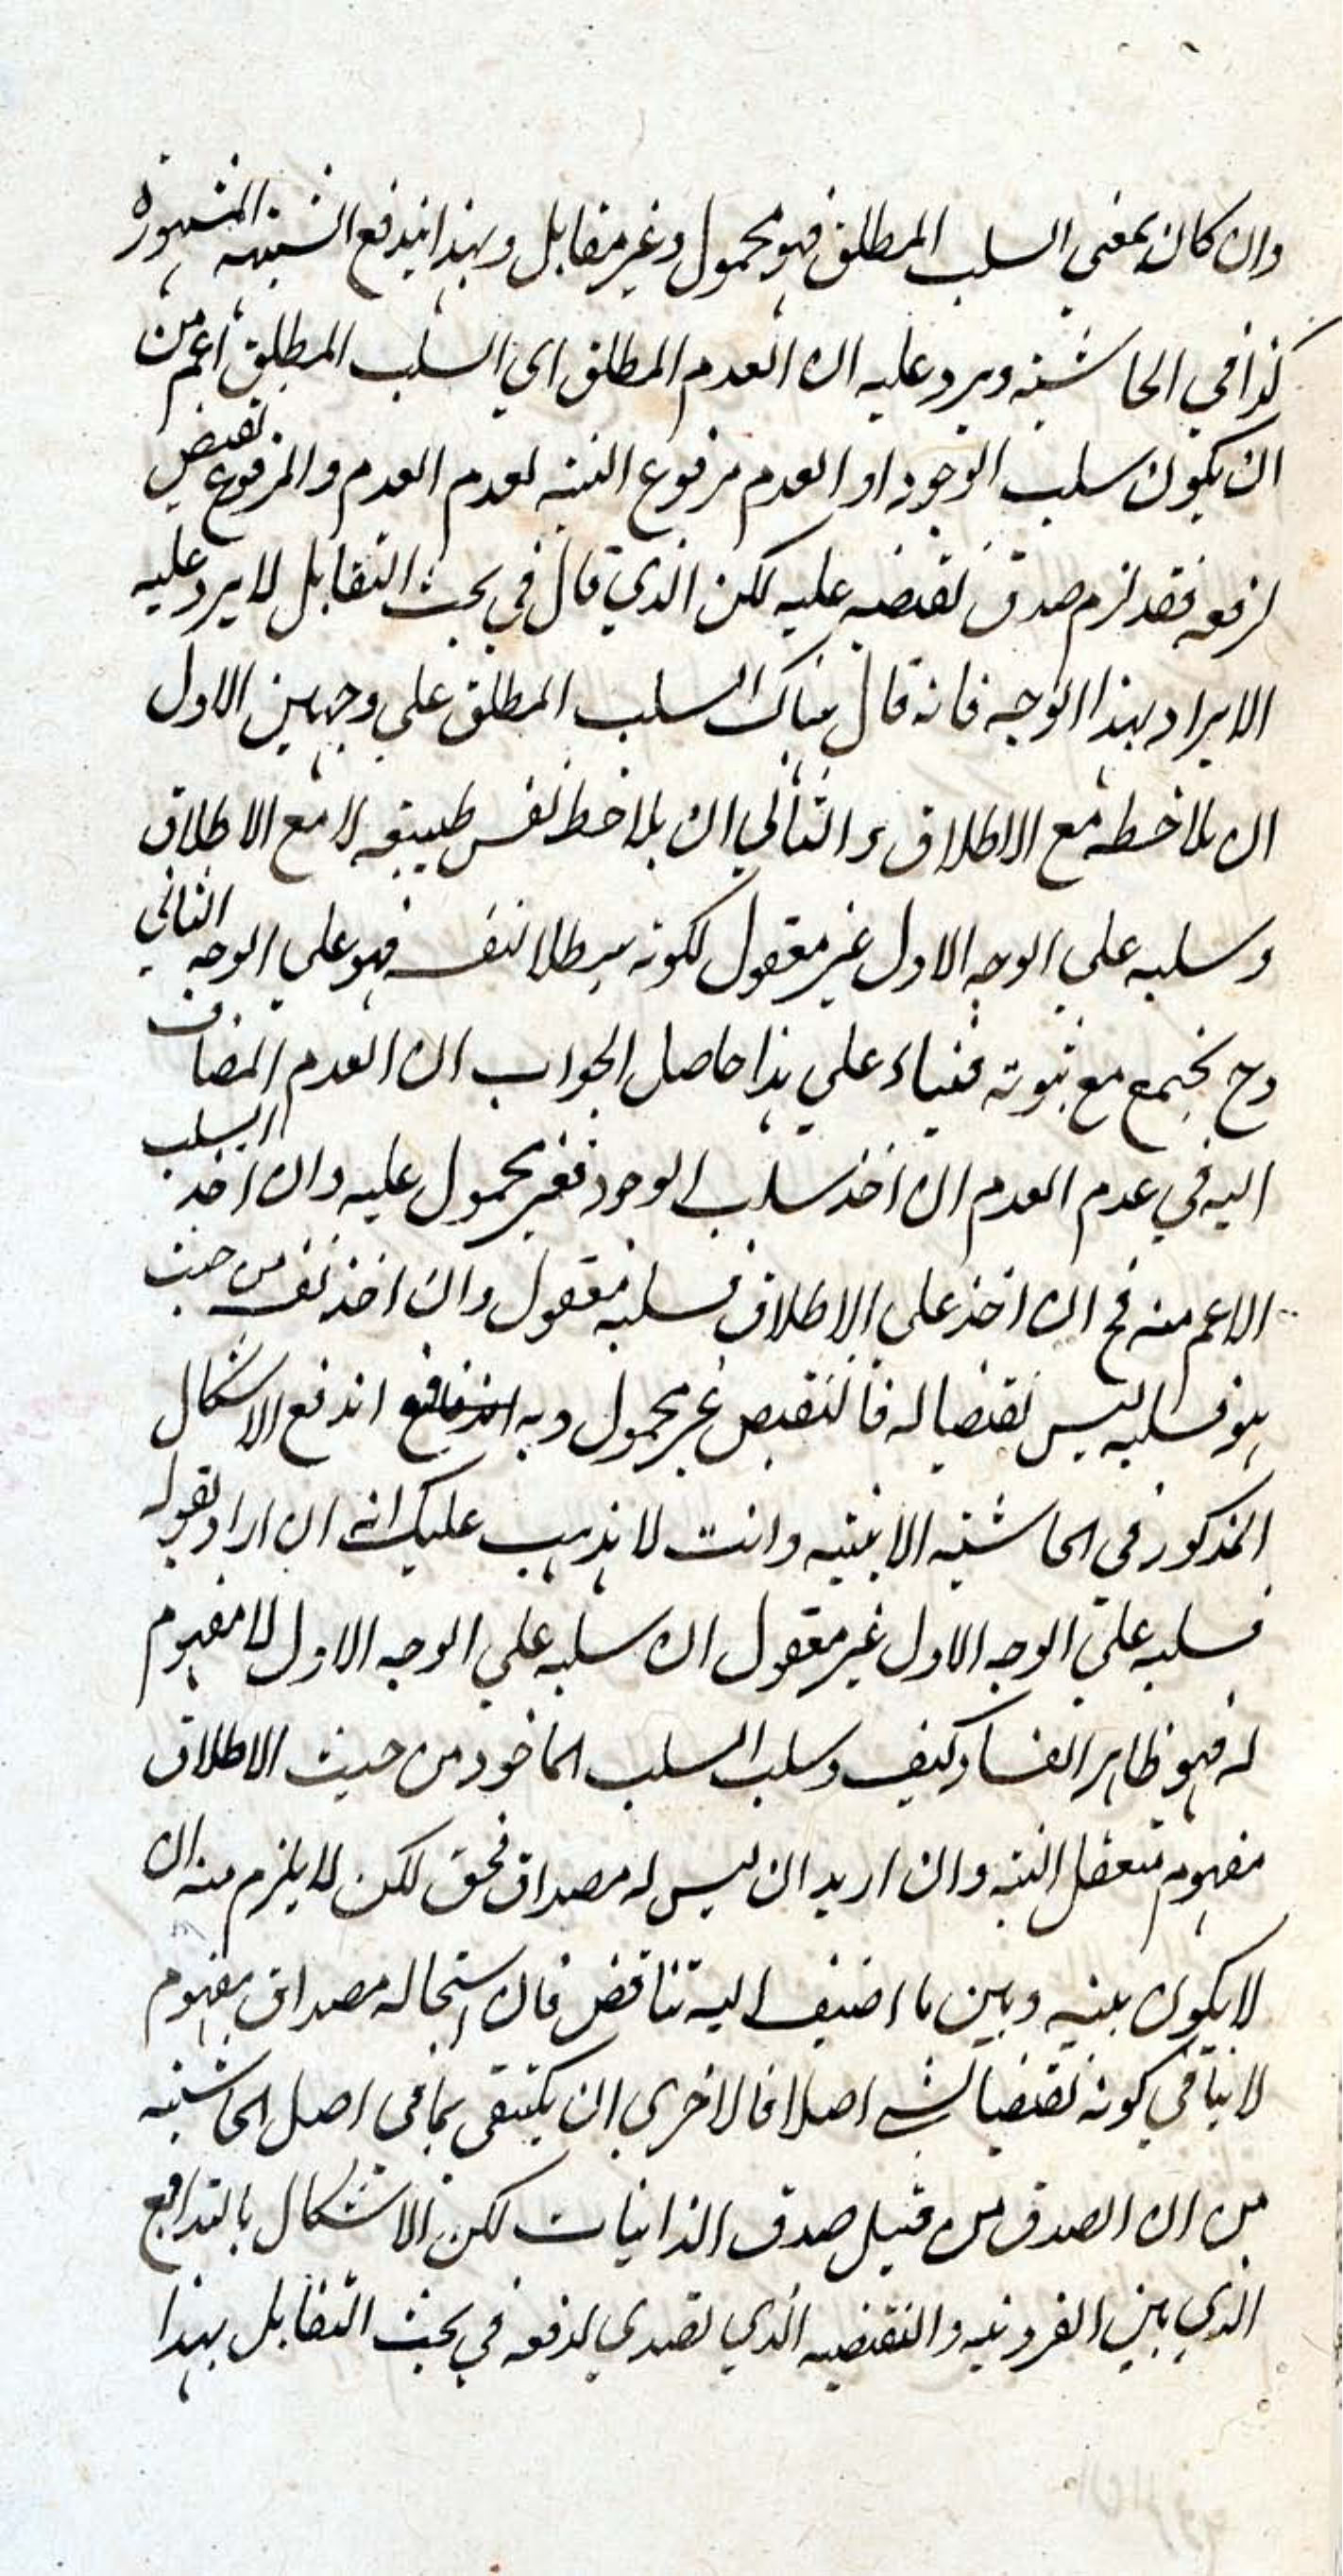 وان كان بمعني السلب المطلق فهو محمول وغير مقابل وبهذا يندفع الشبهه المشهورة
كذا في الحاشيه ويرد عليه ان العدم المطلق اي السلب المطلق اعم من
ان يكون سلب الوجود او العدم مرفوع البته لعدم العدم والمرفوع نقيض
لرفعه فقد لزم صدق نقيضه عليه لكن الذي قال في بحث التقابل لا يرد عليه
الايراد بهذا الوجه فانه قال هناك السلب المطلق علي وجهين الاول
ان يلاحظ مع الاطلاق والثاني ان يلاحظ نفس طبيعته لا مع الاطلاق
وسلبه علي الوجه الاول غير معقول لكونه سلبا لنفسه فهو علي الوجه الثاني
وح يجتمع مع ثبوته فبناء علي هذا حاصل الجواب ان العدم المضاف
اليه في عدم العدم ان اخذ سلب الوجود فغير محمول عليه وان اخذ السلب
الاعم منه فح ان اخذ علي الاطلاق فسلبه معقول وان اخذ نفسه من حيث
هو فسلبه ليس نقيضا له فالنقيض غير محمول وبه اندفع الاشكال
المذكور في الحاشيه الاتيه وانت لا يذهب عليك انه ان اراد بقوله
فسلبه علي الوجه الاول غير معقول ان سلبه علي الوجه الاول لا مفهوم
له فهو ظاهر الفساد كيف وسلب السلب الماخوذ من حيث الاطلاق
مفهوم متعقل البته وان اريد ان ليس له مصداق فحق لكن لا يلزم منه ان
لا يكون بينه وبين ما اضيف اليه تناقض فان استحاله مصداق مفهوم
لا ينافي كونه نقيضا لشي اصلا فالاحري ان يكتفي بما في اصل الحاشيه
من ان الصدق من قبيل صدق الذاتيات لكن الاشكال بالتدافع
الذي بين الفرديه والنقيضيه الذي تصدي لدفعه في بحث التقابل بهذا